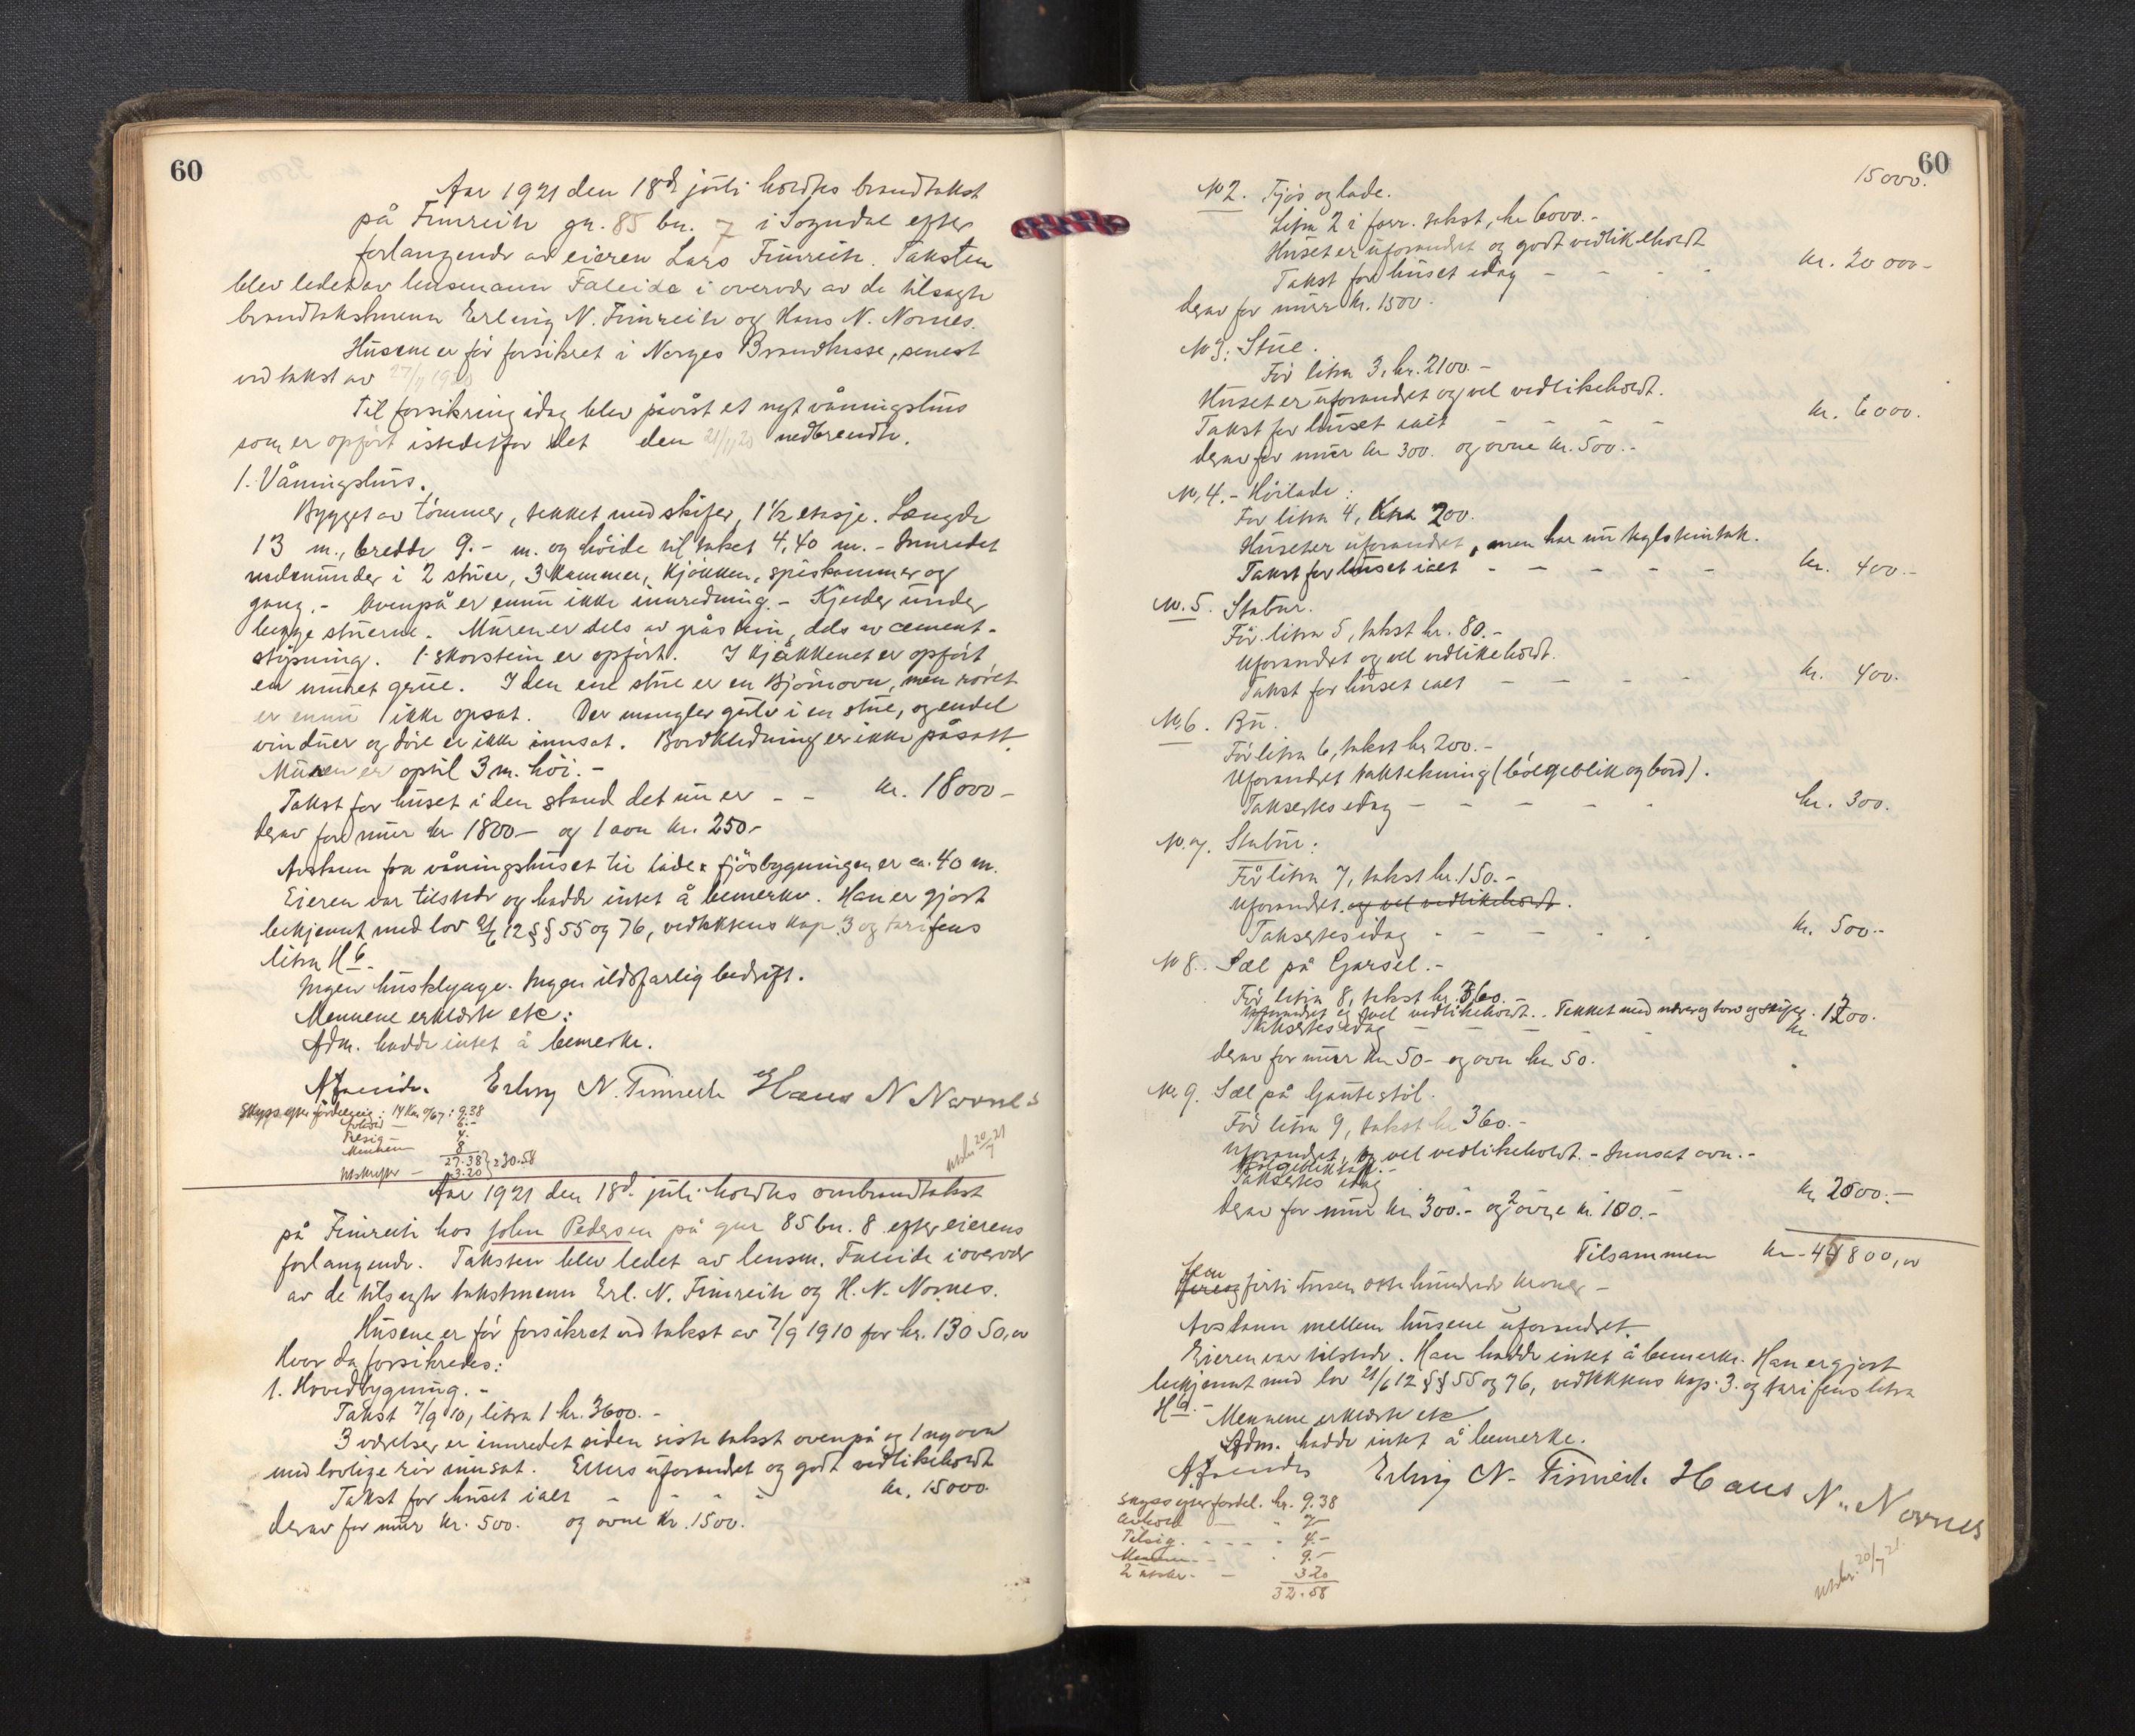 60
Aar 1921 den 18de juli holdtes brandtakst
på Fimreite gn. 85 bn. 7 i Sogndal efter
forlangende av eieren Lars Fimreite. Taksten
blev ledet av lensmann Faleide i overvær av de tilsagte
brandtakstmenn Erling N. Fimreite og Hans N. Nornes.
Husene er før forsikret i Norges Brandkasse, senest
ved takst av 27/ 1920
Til forsikring idag blev påvist et nyt våningshus
som er opført istedetfor det den 21/11 20 nedbrendte.
1. Våningshus.
Bygget av tømmer, tekket med skifer, 1 1/2 etasje. Længde
13 m., bredde 9.- m. og høide til taket 4,40 m. - Innredet
nedenunder i 2 stuer, 3 kammer, kjøkken, spiskammer og
gang. - Ovenpå er ennu ikke innredning. - Kjelder under
begge stuerne. Muren er dels av gråstein, dels av cement-
støpning. 1 skorstein er opført. I kjøkkenet er opført
en muret grue. I den ene stue er en Bjørnovn, men røret
er ennu ikke opsat. Der mangler gulv i en stue, og endel
vinduer og døre er ikke innsat. Bordklædning er ikke påsatt.
Muren er optil 3 m. høi. -
Takst for huset i den stand det nu er - - kr. 18000 -
derav for mur kr 1800 - og 1 ovn kr. 250.-
Avstann fra våningshuset til lade & fjøsbygningen er ca. 40 m.
Eieren var tilstede og hadde intet å bemerke. Han er gjort
bekjennt med lov 21/6 12 §§ 55 og 76, vedtektens kap. 3 og tarifens
litra H 6.
Ingen husklynge. Ingen ildsfarlig bedrift.
Mennene erklærte etc:
Adm. hadde intet å bemerke.
A Faleide. Erling N. Fimreite Hans N Nornes
Skyss efter fordeling: 14 km. 0/67: 9.38
6.-
Tilsig - 4.
Mennene 8
27.38
Utskrifter - 3.20 } 30.58
utskr. 20/7 21
Aar 1921 den 18de juli holdtes ombrandtakst
på Fimreite hos John Pedersen på gnr 85 bn. 8 efter eierens
forlangende. Taksten blev ledet av lensm. Faleide i overvær
av de tilsagte takstmenn Erl. N. Fimreite og H. N. Nornes.
Husene er før forsikret ved takst av 7/9 1910 for kr. 13050,00
Hvor da forsikredes:
1. Hovedbygning. -
Takst 7/9 10, litra 1 kr. 3600. -
3 værelser er innredet siden siste takst ovenpå og 1 ny ovn
med lovlige rør innsat. Ellers uforandret og godt vedlikeholdt
Takst for huset ialt - - - - kr. 15000.
derav for mur kr. 500. og ovne kr. 1500.
60
15000.
No 2. Fjøs og lade.
Litra 2 i forr. takst, kr 6000.-
Huset er uforandret og godt vedlikeholdt
Takst for huset idag - - - - kr. 20 000 -
derav for mur kr. 1500.
No 3. Stue.
Før litra 3, kr. 2100.-
Huset er uforandret og vel vedlikeholdt.
Takst for huset ialt - - - - kr. 6000.
derav for mur kr 300. og ovne kr. 500.-
No. 4. - Høilade:
Før litra 4, kr. 200.
Huset er uforandret, men har nu teglsteintak.
Takst for huset ialt - - - - - kr. 400.-
No. 5. Stabur.
Før litra 5, takst kr. 80.-
Uforandret og vel vedlikeholdt.
Takst for huset ialt - - - - kr. 400.
No 6. Bu.
Før litra 6, takst kr 200.-
Uforandret taktekning (bølgeblik og bord).
Taksertes idag - - - - - kr. 300.
No. 7. Stabur:
Før litra 7, takst kr. 150.-
Uforandret. og vel vedlikeholdt.
Taksertes idag - - - - - kr. 500.-
No 8. Sæl på Gjarsel. -
Før litra 8, takst kr. 360.
Uforandret og vel vedlikeholdt. Tekket med never og torv og skifer.
Taksertes idag - - - - kr 1200.
derav for mur kr 50 - og ovn kr. 50.
No. 9. Sæl på Gautestøl.
Før litra 9, takst kr 360.-
Uforandret, og vel vedlikeholdt. - Innsat ovn. -
Bølgebliktak. -
Taksertes idag - - - - kr 2000.-
derav for mur kr. 300.- og 2 ovne kr. 100.-
Tilsammen kr. 45800,00
fem
fire og firti tusen otte hundrede kroner -
Avstann mellem husene uforandret.
Eieren var tilstede. Han hadde intet å bemerke. Han er gjort
bekjennt med lov 21/6 12 §§ 55 og 76, vedtektens kap. 3. og tarifens litra
H 6. -
Mennene erklærte etc
Adm. hadde intet å bemerke.
A Faleide Erling N. Fimreite Hans N. Nornes
Skyss efter fordel. kr. 9.38
Avhold - " 7-
Tilsig. - - - - " 4.-
Menn - - " 9.-
2 utskr. - 3.20
32.58
utskr. 20/7 21.